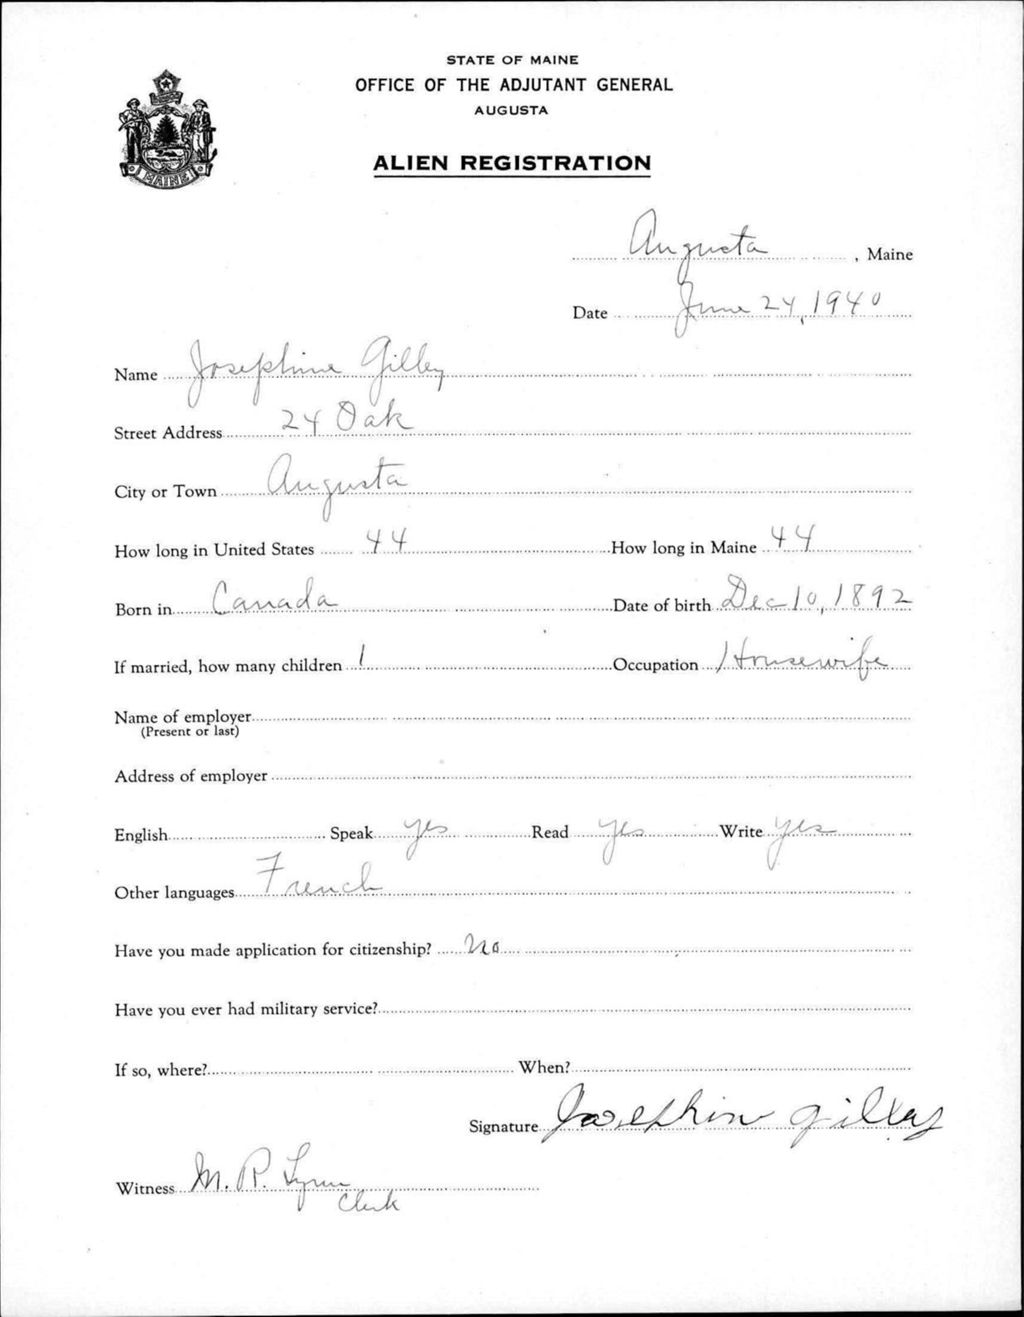 STATE OF MAINE
OFFICE OF THE ADJUTANT GENERAL
AUGUSTA
ALIEN REGISTRATION
MAINE
Augusta, Maine
Date June 24, 1940
Name Josephine Gilley
Street Address 24 Oak
City or Town Augusta
How long in United States 44 How long in Maine 44
Born in Canada Date of birth Dec 10, 1892
If married, how many children 1 Occupation Housewife
Name of employer
(Present or last)
Address of employer
English Speak yes Read yes Write yes
Other languages French
Have you made application for citizenship? no
Have you ever had military service?
If so, where? When?
Signature Josephine Gilley
Witness M. R. Lynn
Clerk